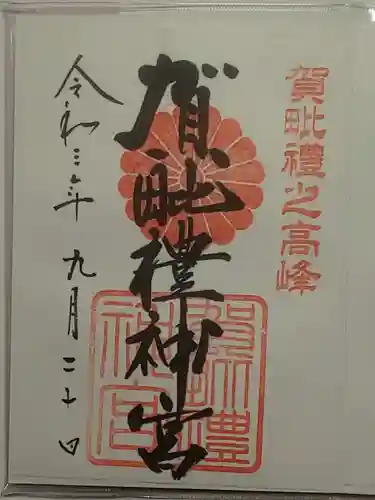 賀毗禮之高峰
賀毗禮神宮
令和三年九月二十日
賀毗禮
神宮